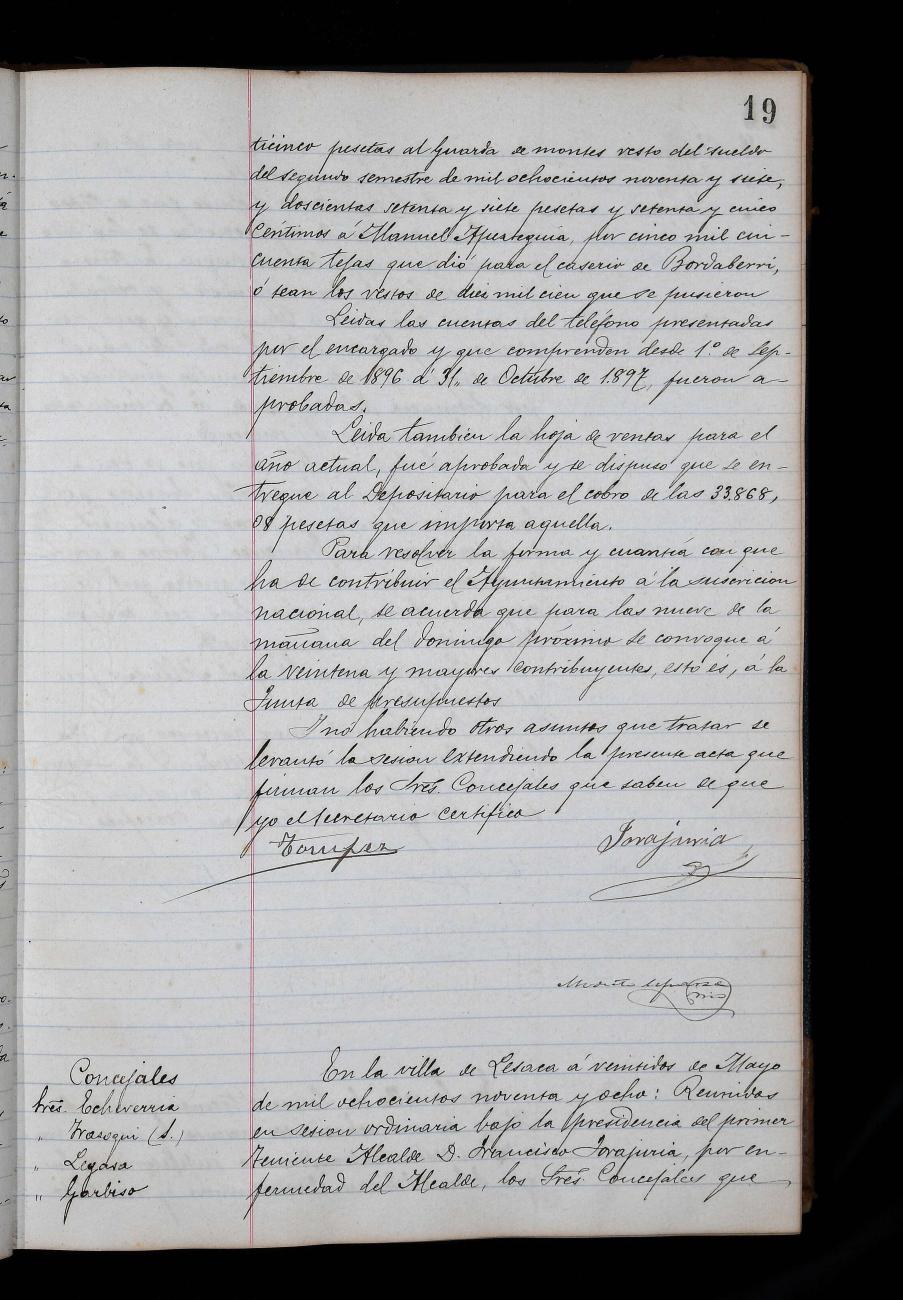 19
ticinco pesetas al Guarda de montes resto del sueldo
del segundo semestre de mil ochocientos noventa y siete,
y doscientas setenta y siete pesetas y setenta y cinco
Céntimos á Manuel Apezteguia, por cinco mil cin-
cuenta tejas que dió para el caserio de Bordaberri,
ó sean los restos de diez mil cien que se pusieron
Leidas las cuentas del teléfono presentadas
por el encargado y que comprenden desde 1.º de Sep-
tiembre de 1896 á 31,, de Octubre de 1.897, fueron a-
probadas.
Leida tambien la hoja de rentas para el
año actual, fué aprobada y se dispuso que se en-
tregue al Depositario para el cobro de las 33.868,
08 pesetas que importa aquella.
Para resolver la forma y cuantía con que
ha de contribuir el Ayuntamiento á la suscricion
nacional, se acuerda que para las nueve de la
mañana del domingo próximo se convoque á
la veintena y mayores contribuyentes, esto és, á la
Junta de presupuestos
Y no habiendo otros asuntos que tratar se
levantó la sesion extendiendo la presente acta que
firman los Sres. Concejales que saben de que
yo el Secretario certifico
Jorajuria
Concejales
Sres. Echeverria
" Irazoqui (S.)
" Legasa
" Garbiso
En la villa de Lesaca á veintidos de Mayo
de mil ochocientos noventa y ocho: Reunidos
en sesion ordinaria bajo la presidencia del primer
Teniente Alcalde D. Francisco Jorajuria, por en-
fermedad del Alcalde, los Sres. Concejales que